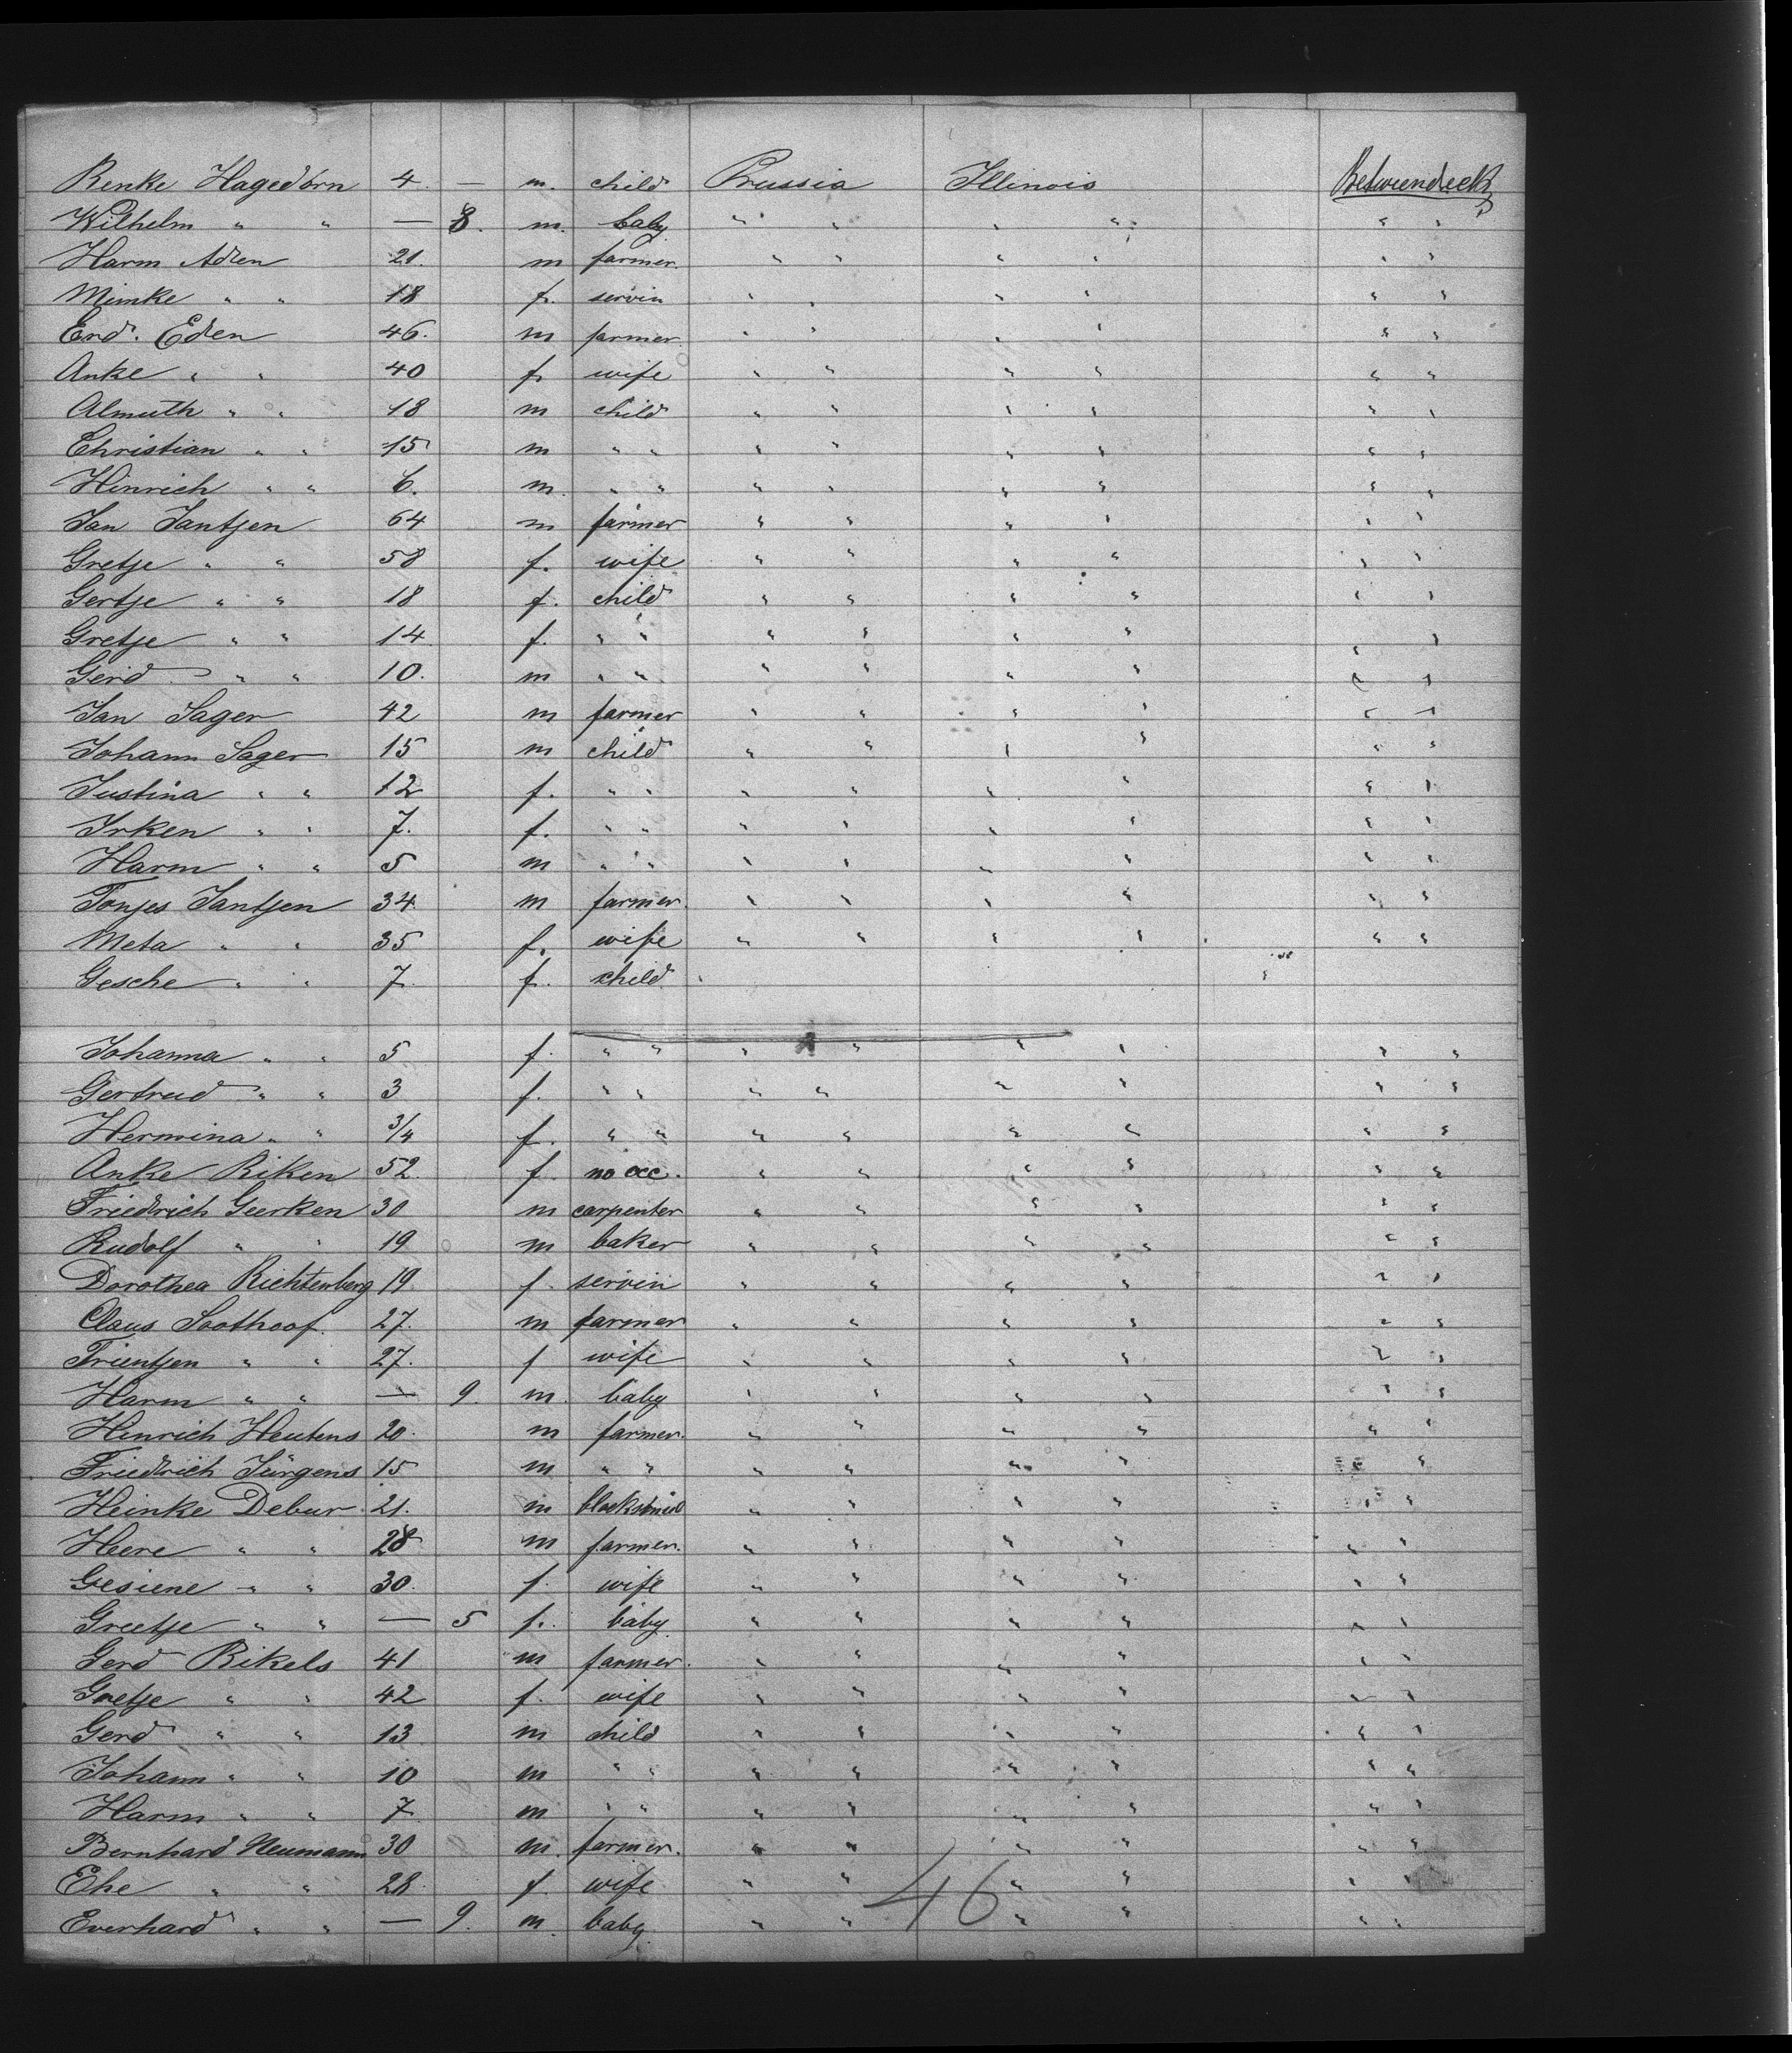 Renke Hagedorn 4. — m. child Prussia Illinois Betweendeck
Wilhelm " " — 8. m. baby " " " " " "
Harm Aden 21. m farmer. " " " " " "
Mimke " " 18 f. servin " " " " " "
End. Eden 46. m farmer. " " " " " "
Anke " " 40 f. wife " " " " " "
Almuth " " 18 m child " " " " " "
Christian " " 15 m " " " " " " " "
Hinrich " " 6. m. " " " " " " " "
Jan Jantjen 64 m farmer " " " " " "
Gretje " " 58 f. wife " " " " " "
Gertje " " 18 f. child " " " " " "
Gretje " " 14 f. " " " " " " " "
Gerd " " 10. m " " " " " " " "
Jan Sager 42 m farmer " " " " " "
Johann Sager 15 m child " " " " " "
Justina " " 12 f. " " " " " " " "
Irken " " 7. f. " " " " " " " "
Harm " " 5 m " " " " " " " "
Tonjes Jantjen 34 m farmer. " " " " " "
Meta " " 35 f. wife " " " " " "
Gesche " " 7. f. child "
Johanna " " 5 f. " " " " " " " "
Gertrud " " 3 f. " " " " " " " "
Hermina " " 3/4 f. " " " " " " " "
Anke Riken 52 f. no occ. " " " " " "
Friedrich Geerken 30 m carpenter " " " " " "
Rudolf " " 19 m baker " " " " " "
Dorothea Richtenberg 19 f. servin " " " " " "
Claus Soothoof. 27. m farmer " " " " " "
Trientjen " " 27. f wife " " " " " "
Harm " " — 9. m. baby " " " " " "
Hinrich Heutens 20. m farmer. " " " " " "
Friedrich Jürgens 15 m " " " " " " " "
Heinke Debur. 21. m blacksmid " " " " " "
Heere " " 28 m farmer. " " " " " "
Gesiene " " 30. f. wife " " " " " "
Greetje " " — 5 f. baby. " " " " " "
Gerd Rikels 41 m farmer. " " " " " "
Gretje " " 42 f. wife " " " " " "
Gerd " " 13 m child " " " " " "
Johann " " 10 m " " " " " " " "
Harm " " 7 m " " " " " " " "
Bernhard Neumann 30 m. farmer. " " " " " "
Ehe " " 28 f. wife " " " " " "
Everhard " " — 9. m. baby. " " " " " "
46